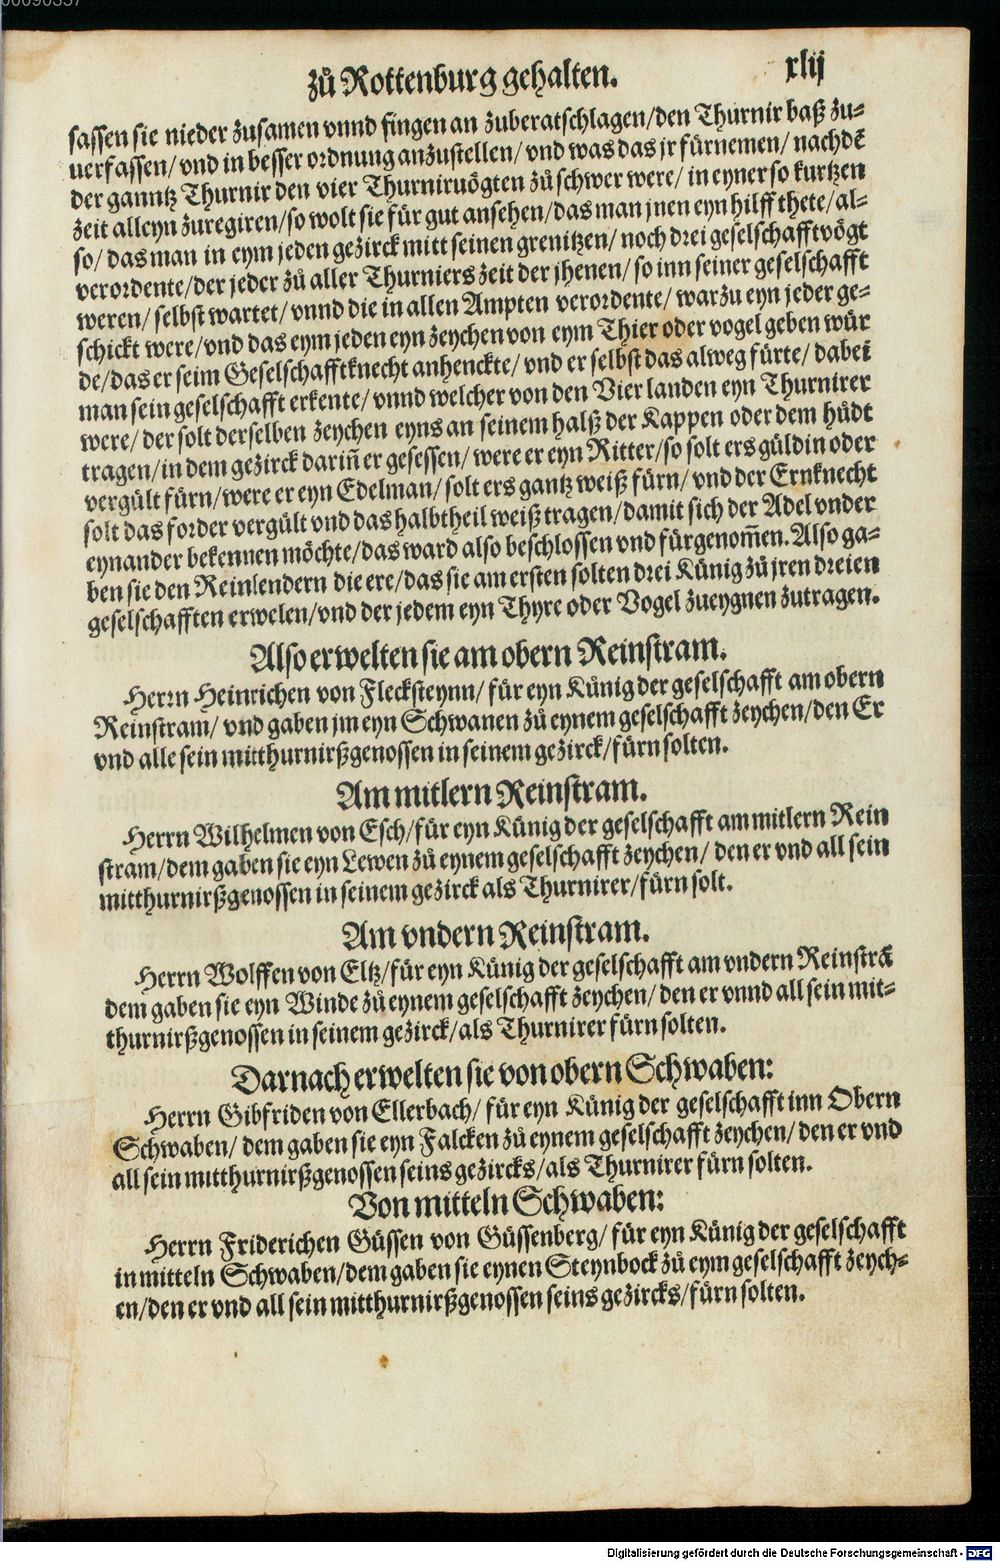 00090357
zů Rottenburg gehalten. xlij
sassen sie nieder zusamen vnnd fingen an zuberatschlagen/den Thurnir baß zu-
uerfassen/ vnd in besser ordnung anzustellen/ vnd was das jr fürnemen/ nachdē
der ganntz Thurnir den vier Thurniruögten zů schwer were/ in eyner so kurtzen
zeit alleyn zuregiren/so wolt sie für gut ansehen/das man jnen eyn hilff thete/al-
so/ das man in eym jeden gezirck mitt seinen grenitzen/ noch drei geselschafftvögt
verordente/der jeder zů aller Thurniers zeit der jhenen/ so inn seiner geselschafft
weren/ selbst wartet/ vnnd die in allen Ampten verordente/ warzu eyn jeder ge-
schickt were/vnd das eym jeden eyn zeychen von eym Thier oder vogel geben wür
de/das er seim Geselschafftknecht anhenckte/ vnd er selbst das alweg fürte/ dabei
man sein geselschafft erkente/ vnnd welcher von den Vier landen eyn Thurnirer
were/ der solt derselben zeychen eyns an seinem halß der Kappen oder dem hůdt
tragen/in dem gezirck dariñ er gesessen/ were er eyn Ritter/so solt ers güldin oder
vergült fürn/were er eyn Edelman/ solt ers gantz weiß fürn/ vnd der Ernknecht
solt das forder vergült vnd das halbtheil weiß tragen/damit sich der Adel vnder
eynander bekennen möchte/das ward also beschlossen vnd fürgenom̃en. Also ga-
ben sie den Reinlendern die ere/das sie am ersten solten drei Künig zů jren dreien
geselschafften erwelen/vnd der jedem eyn Thyre oder Vogel zueygnen zutragen.
Also erwelten sie am obern Reinstram.
Herrn Heinrichen von Flecksteynn/ für eyn Künig der geselschafft am obern
Reinstram/ vnd gaben jm eyn Schwanen zů eynem geselschafft zeychen/den Er
vnd alle sein mitthurnirßgenossen in seinem gezirck/fürn solten.
Am mitlern Reinstram.
Herrn Wilhelmen von Esch/für eyn Künig der geselschafft am mitlern Rein
stram/dem gaben sie eyn Lewen zů eynem geselschafft zeychen/ den er vnd all sein
mitthurnirßgenossen in seinem gezirck als Thurnirer/fürn solt.
Am vndern Reinstram.
Herrn Wolffen von Eltz/für eyn Künig der geselschafft am vndern Reinstrā
dem gaben sie eyn Winde zů eynem geselschafft zeychen/ den er vnnd all sein mit-
thurnirßgenossen in seinem gezirck/als Thurnirer fürn solten.
Darnach erwelten sie von obern Schwaben:
Herrn Gibfriden von Ellerbach/ für eyn Künig der geselschafft inn Obern
Schwaben/ dem gaben sie eyn Falcken zů eynem geselschafft zeychen/ den er vnd
all sein mitthurnirßgenossen seins gezircks/als Thurnirer fürn solten.
Von mitteln Schwaben:
Herrn Friderichen Güssen von Güssenberg/ für eyn Künig der geselschafft
in mitteln Schwaben/dem gaben sie eynen Steynbock zů eym geselschafft zeych-
en/den er vnd all sein mitthurnirßgenossen seins gezircks/fürn solten.
Digitalisierung gefördert durch die Deutsche Forschungsgemeinschaft - DFG